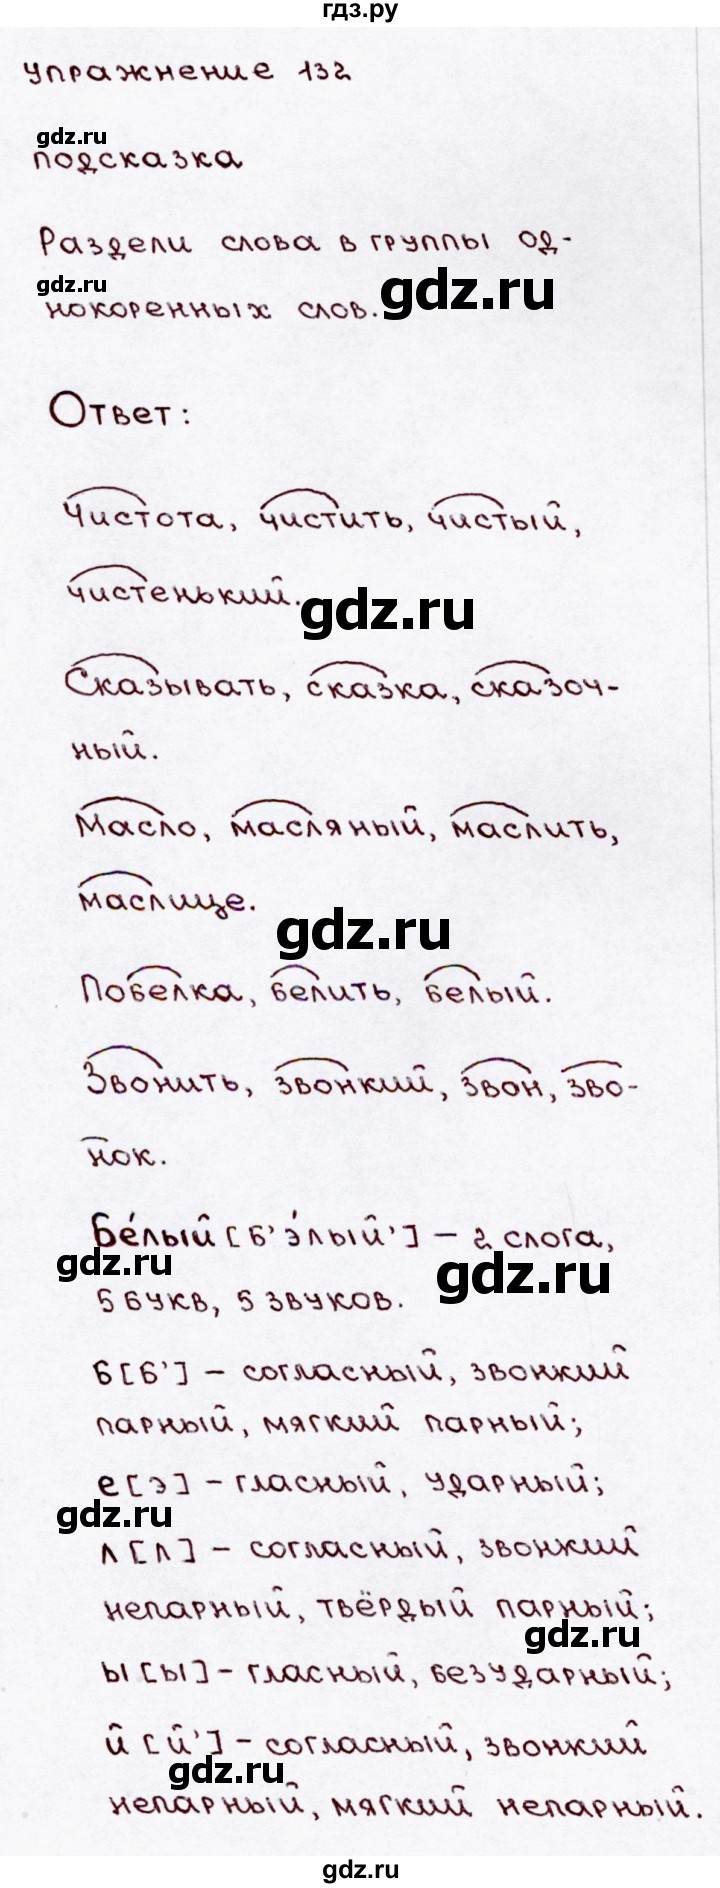 гдз.ру
Упражнение 132
gdz.ru
Подсказка
Раздели слова в группы од-
gdz.ru
gdz.ru
нокоренных слов.
Ответ:
Чистота, чистить, чистый,
чистенький.
gdz.ru
Сказывать, сказка, сказоч-
ный.
Масло, масляный, маслить,
маслище.
gdz.ru
Побелка, белить, белый.
Звонить, звонкий, звон, зво-
нок.
Бе́лый [б'э́лый'] – 2 слога,
gdz.ru
gdz.ru
5 букв, 5 звуков.
б [б'] – согласный, звонкий
парный, мягкий парный;
е [э] – гласный, ударный;
gdz.ru
л [л] – согласный, звонкий
непарный, твёрдый парный;
gdz.ru
ы [ы] – гласный, безударный;
й [й'] – согласный, звонкий
gdz.ru
непарный, мягкий непарный.
gdz.ru